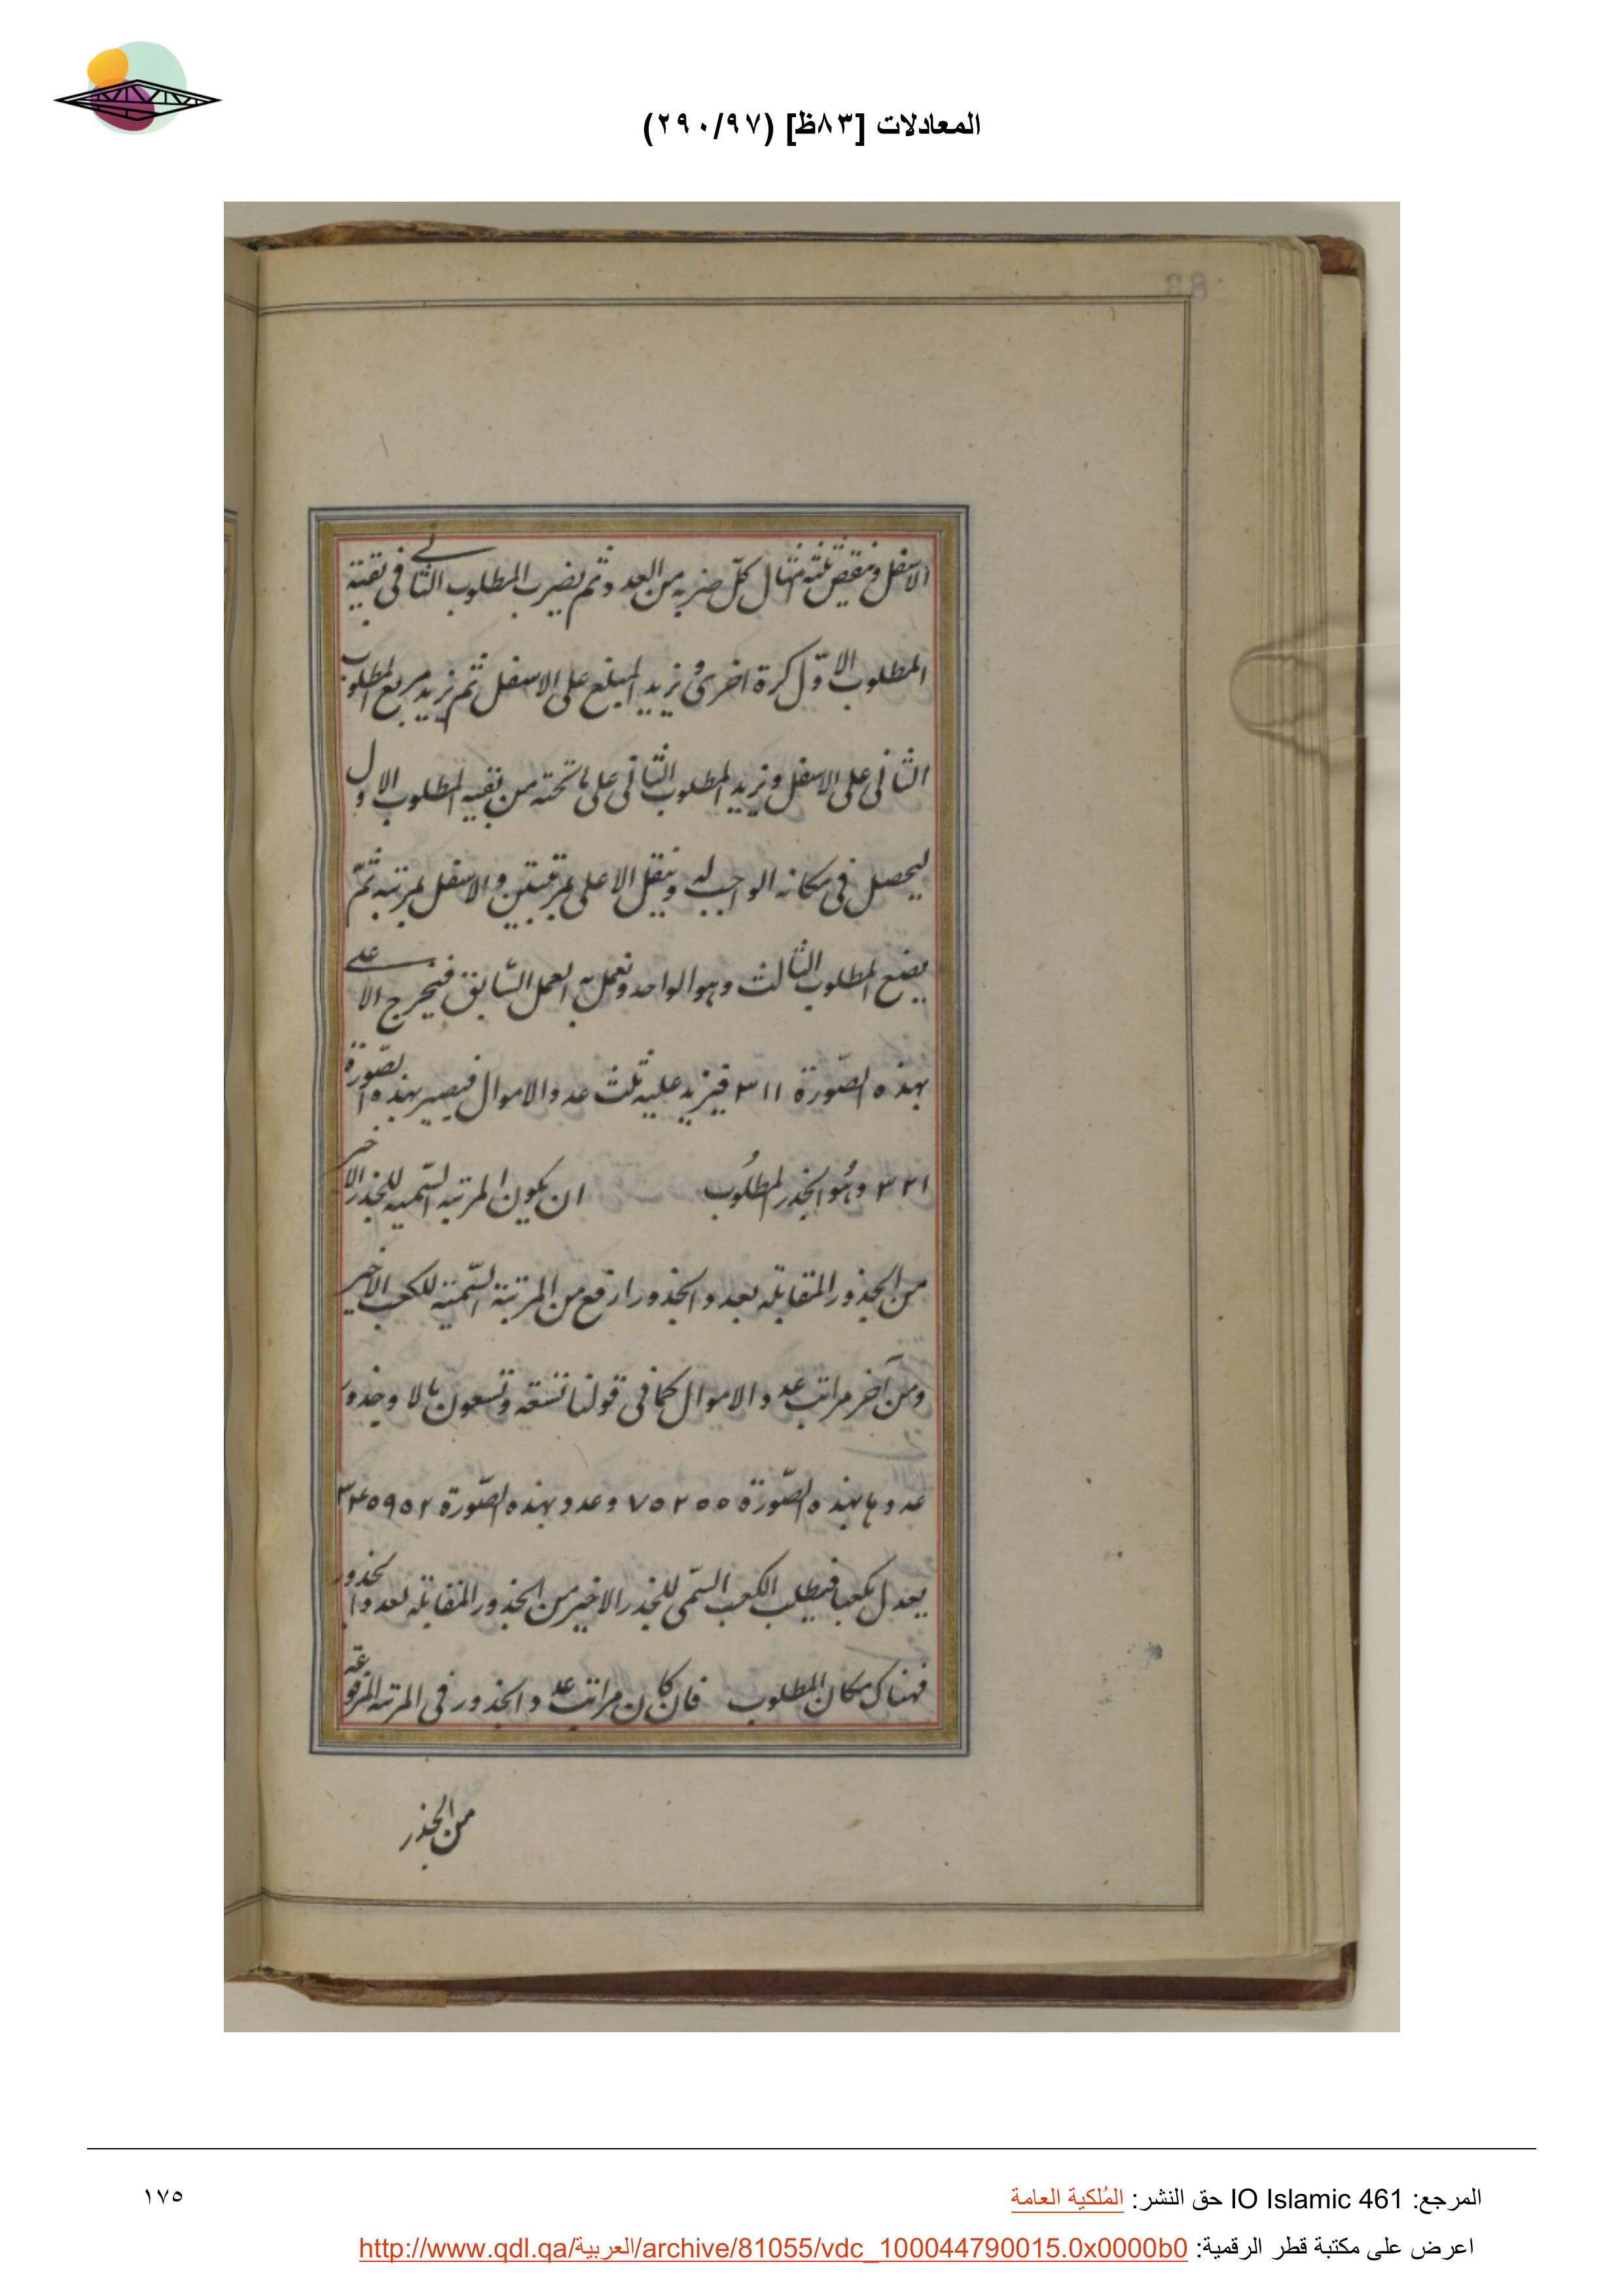 المعادلات [٨٣ظ] (٢٩٠/٩٧)
الاسفل وننقص ثلثة امثال كل ضربه من العدد ثم يضرب المطلوب الثاني في بقية
المطلوب الاول كرة اخرى ونزيد المبلغ على الاسفل ثم نزيد مربع المطلوب
الثاني على الاسفل ونزيد المطلوب الثاني على ما تحته من بقيه المطلوب الاول
ليحصل في مكانه الواجب له وينقل الاعلى بمرتبتين والاسفل بمرتبه ثمّ
يضع المطلوب الثالث وهو الواحد ونعمل به العمل السّابق فيخرج الاعلى
بهذه الصّورة ٣١١ فيزيد عليه ثلث عدد الاموال فيصير بهذه الصّورة
٣٢١ وهُو الجذر المطلوُب ان يكون المرتبه السّميه للجذر الاخير
من الجذور المقابله بعدد الجذور ارفع من المرتبة السّميّة للكعب الاخير
ومن آخر مراتب عدد الاموال كما في قولنا تسعة وتسعون مالا وجذور
عددها بهذه الصّورة ٧٥٢٥٥ وعدد بهذه الصّورة ٣٤٥٩٥٢
يعدل مكعبا فيطلب الكعب السّمى للجذر الاخير من الجذور المقابله بعدد الجذور
فهناك مكان المطلوب فان كان مراتب عدد الجذور في المرتبه المرفوعة
من الجذر
المرجع: IO Islamic 461 حق النشر: المُلكية العامة
١٧٥
اعرض على مكتبة قطر الرقمية: http://www.qdl.qa/العربية/archive/81055/vdc_100044790015.0x0000b0